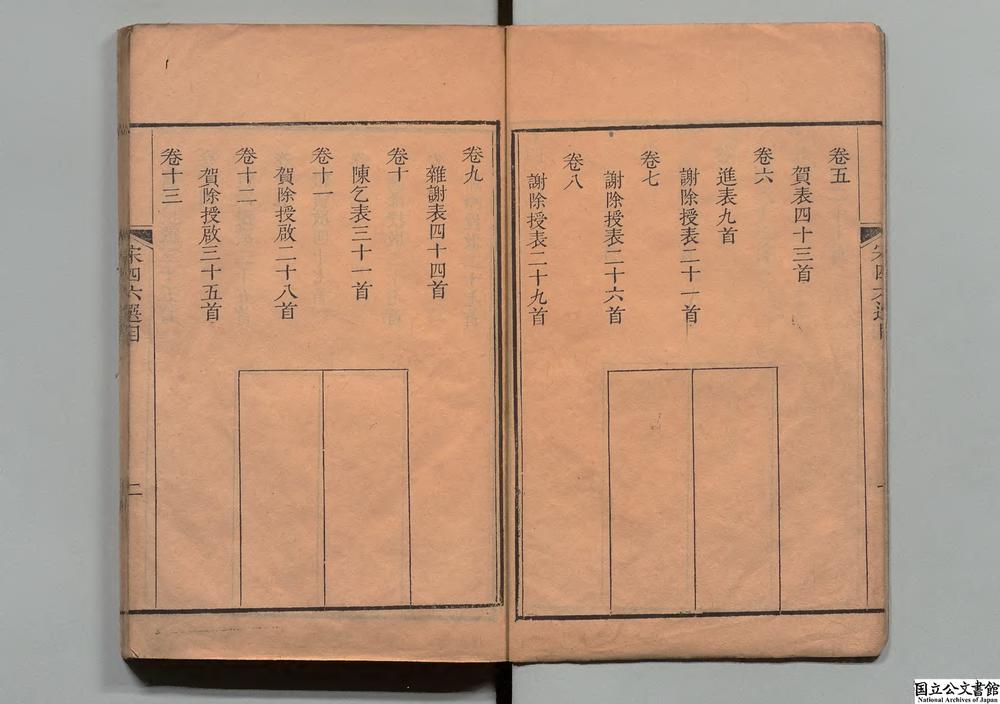 卷五
賀表四十三首
卷六
進表九首
謝除授表二十一首
卷七
謝除授表二十六首
卷八
謝除授表二十九首
卷九
雜謝表四十四首
卷十
陳乞表三十一首
卷十一
賀除授啟二十八首
卷十二
賀除授啟三十五首
卷十三
宋四六選目
二
国立公文書館
National Archives of Japan